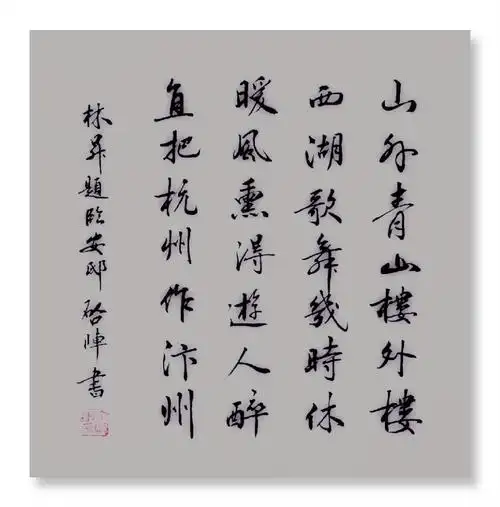 山外青山樓外樓
西湖歌舞幾時休
暖風熏得遊人醉
直把杭州作汴州
林昇題臨安邸 陣書